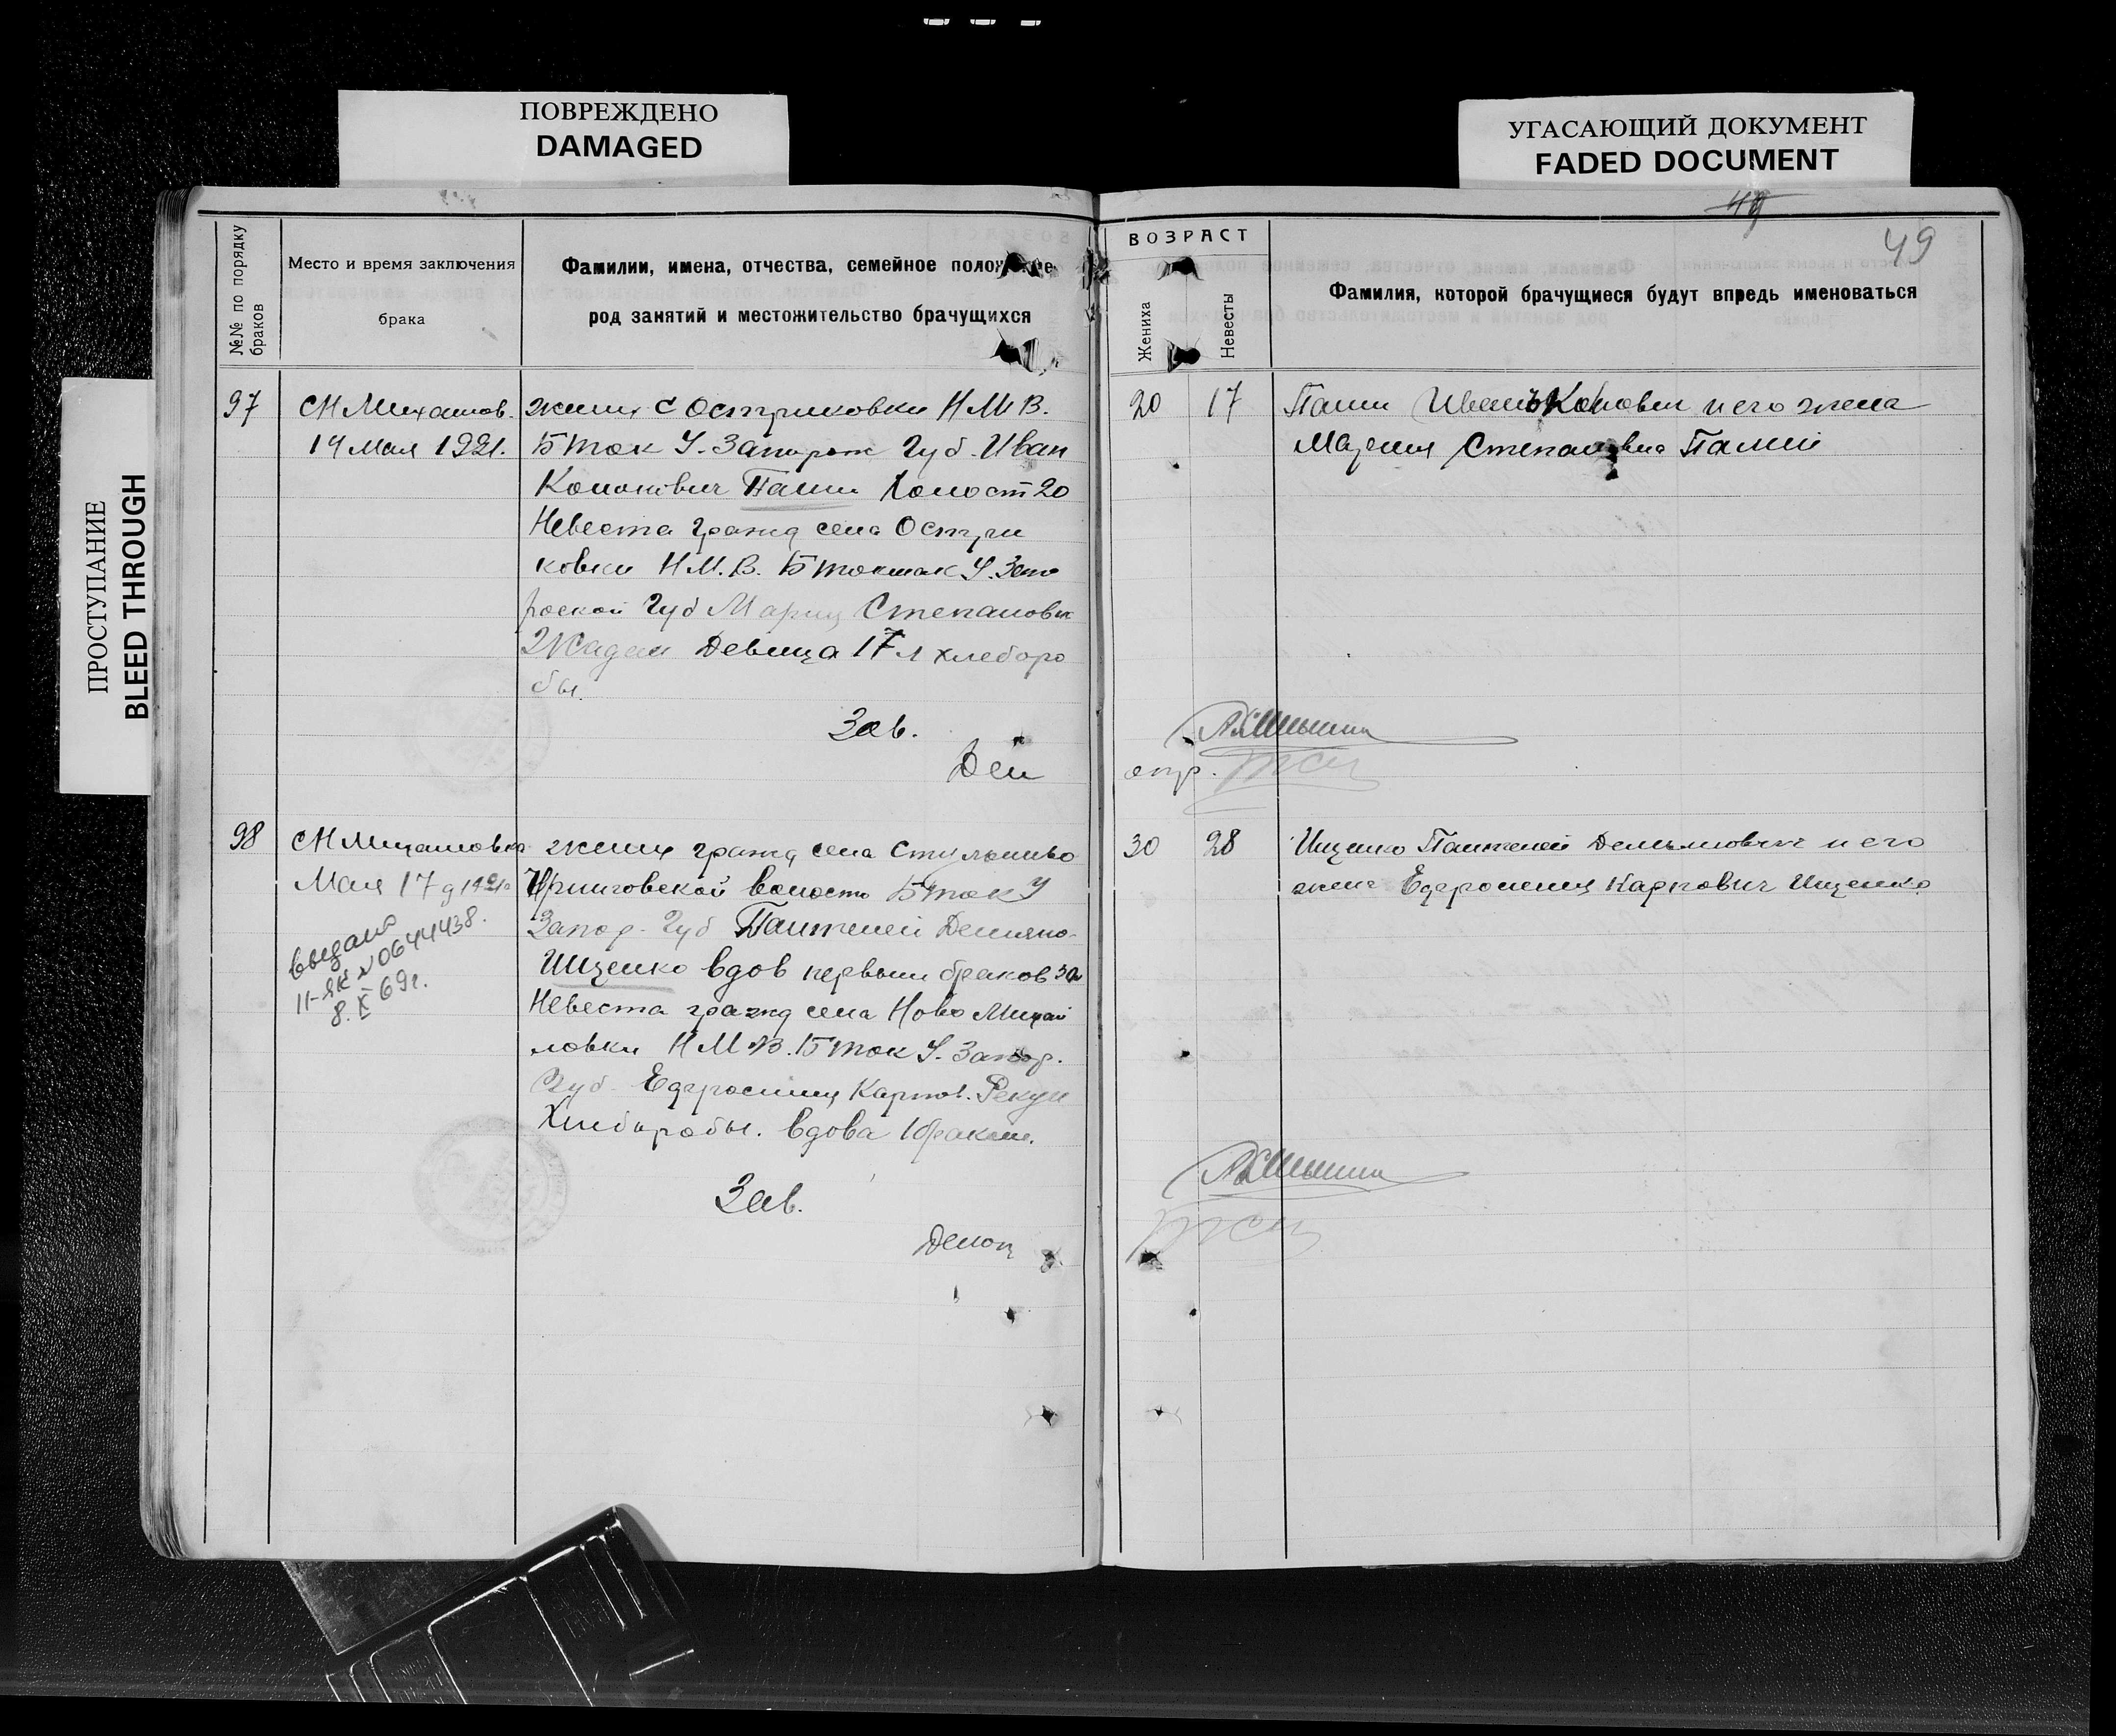 ПОВРЕЖДЕНО
DAMAGED
УГАСАЮЩИЙ ДОКУМЕНТ
FADED DOCUMENT
ПРОСТУПАНИЕ
BLEED THROUGH
49
49
№№ по порядку браков
Место и время заключения
брака
Фамилии, имена, отчества, семейное
род занятий и местожительство брачущихся
ВОЗРАСТ
Жениха
Невесты
Фамилия, которой брачущиеся будут впредь именоваться
97
С Н Михайлов.
14 Мая 1921.
жених с Остриковки Н М В.
Б Ток У. Запорож Губ. Иван
Кононович холост 20
Невеста гражд села Остри
ковки Н М. В. Б Токмак У. Запо
рожской Губ Мария Степановн
Девица 17 л хлеборо
бы.
Зав.
20
17
Иван Кононович и его жена
Мария Степановна
98
С Н Михайловка
Мая 17 д 1921 г
выдано
II-ЯК № 0644438.
8. X 69 г.
жених гражд села
волости Б Ток У
Запор. Губ Пантелей Демьяно-
Ищенко вдов первым браком 30 л
Невеста гражд села Ново Михай
ловки Н М В. Б Ток У. Запор.
Губ. Ефросиния Карпов.
Хлеборобы. вдова 1 браком.
Зав.
30
28
Ищенко Пантелей Демьянович и его
жена Ефросиния Карповна Ищенко